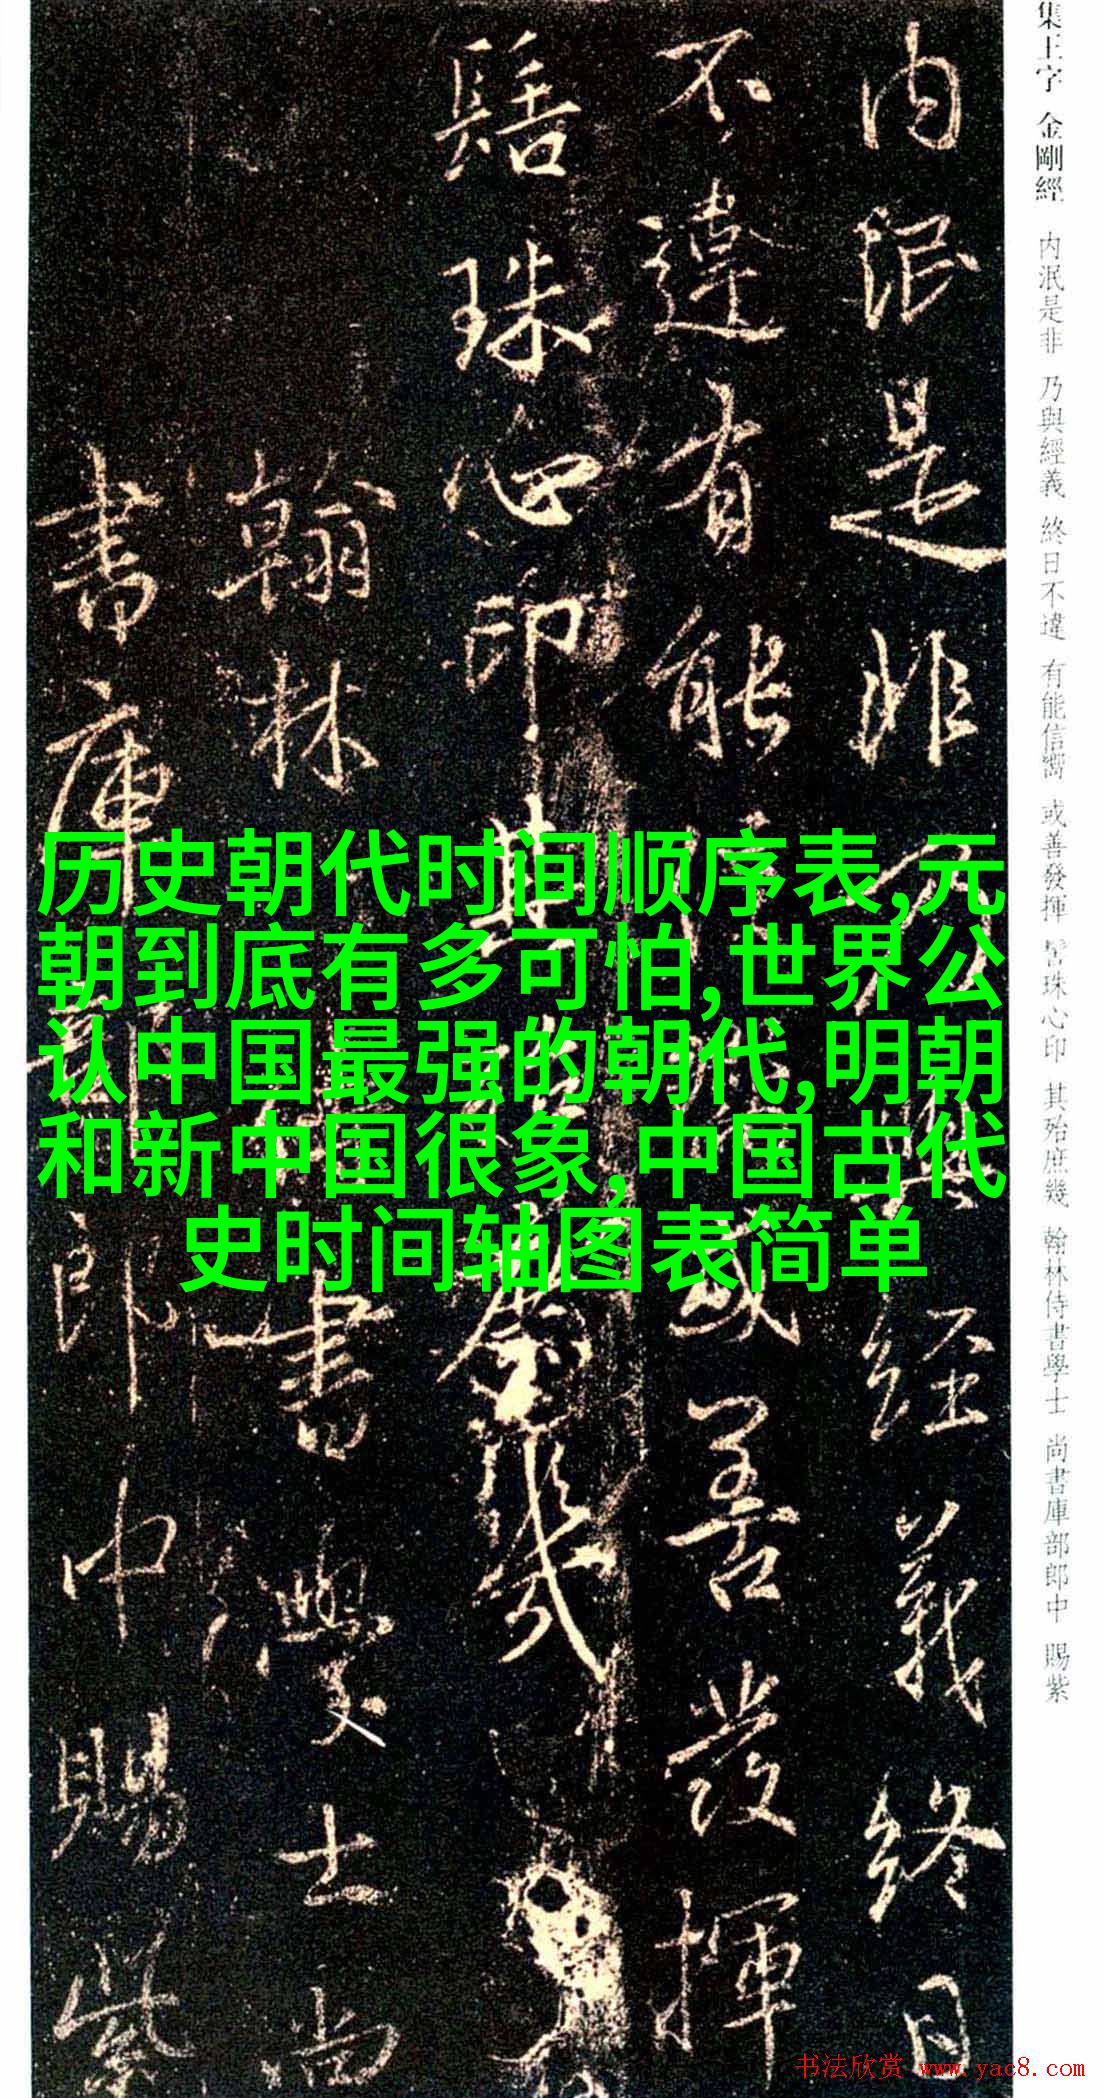 集王字 金剛經 内泯是非 乃與經義 終日不違 有能信嚮 或善發揮 髻珠心印 其殆庶幾 翰林侍書學士 尚書庫部郎中 賜紫
内泯是非乃與經義終日
不違有能信嚮或善發揮
髻珠心印其殆庶幾
翰林侍書學士尚
書庫部郎中賜紫
历史朝代时间顺序表,元
朝到底有多可怕,世界公
认中国最强的朝代,明朝
和新中国很象,中国古代
史时间轴图表简单
书法欣赏 www.yac8.com